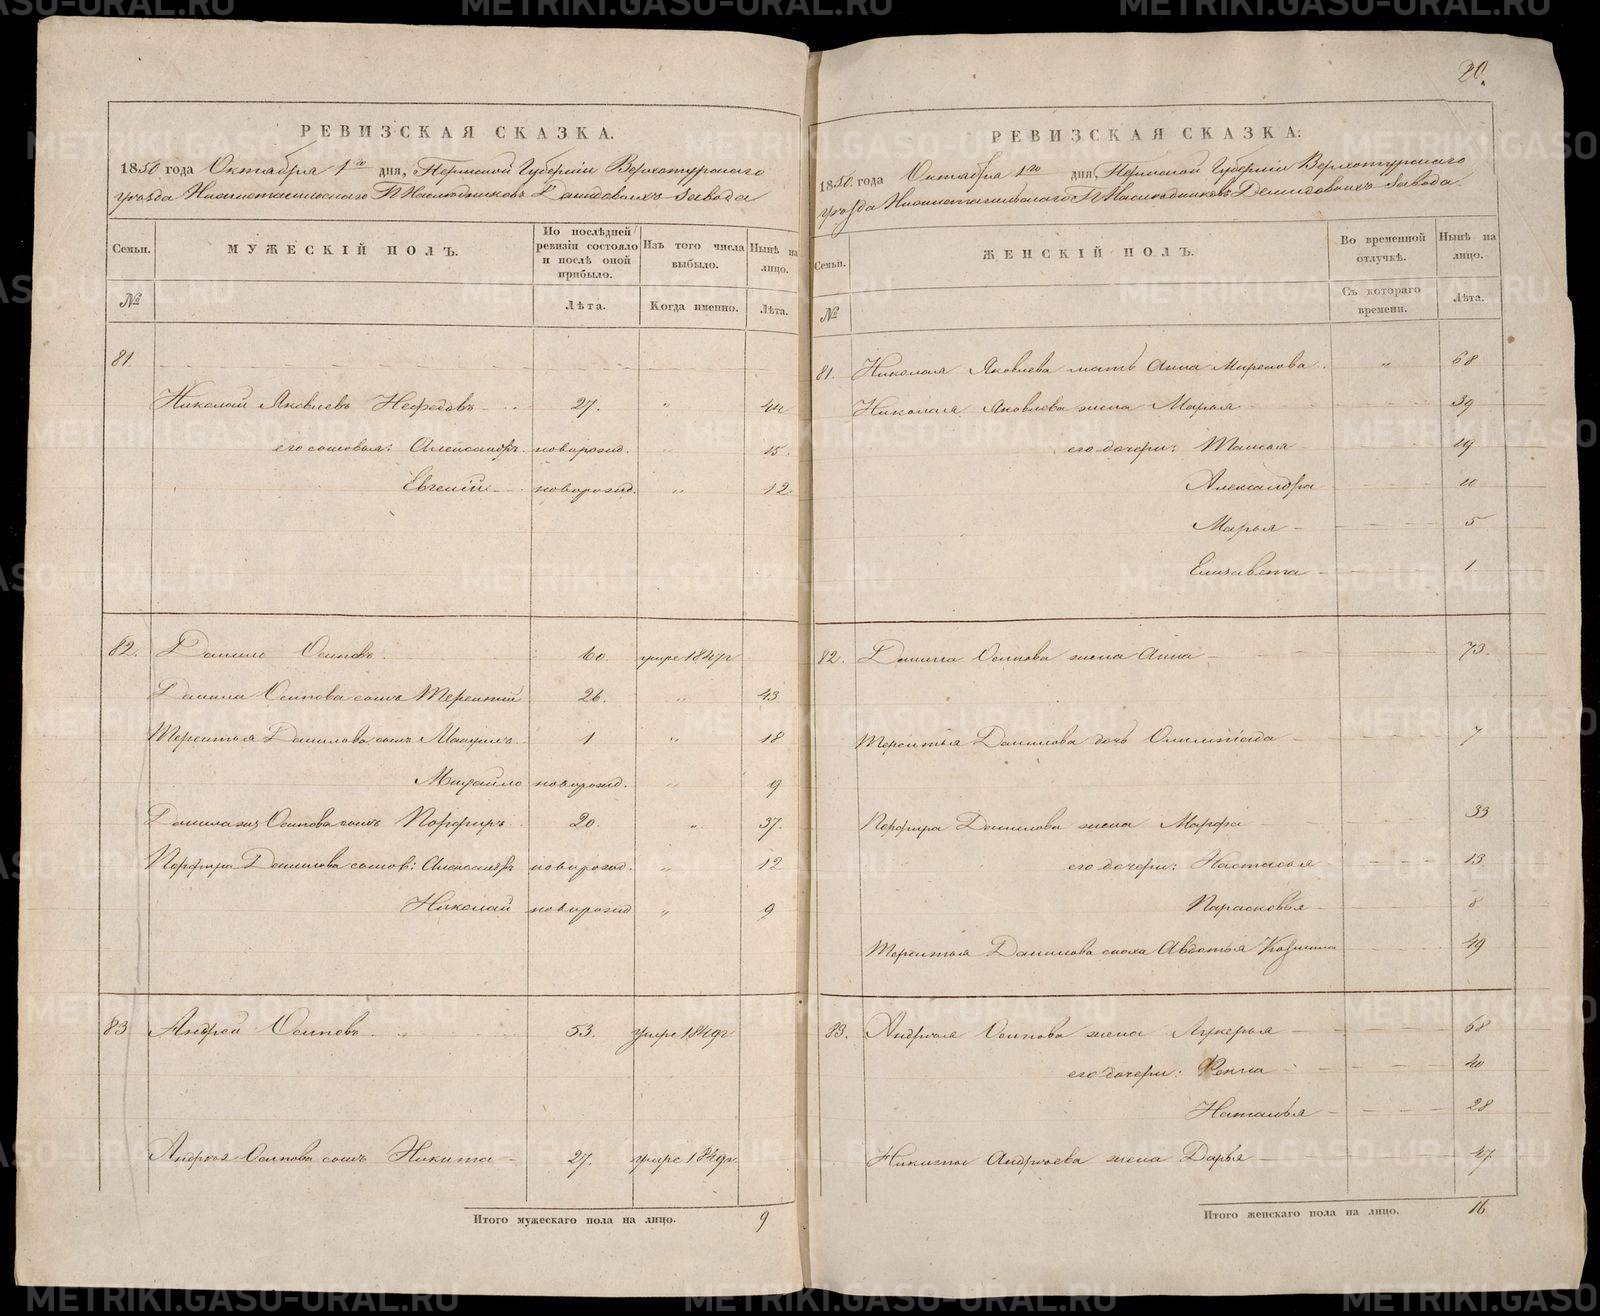 РЕВИЗСКАЯ СКАЗКА.
1850 года Октября 1го дня, Пермской Губернии Верхотурского
уезда Нижнетагильского Г.г. Наследников Демидовых завода
Семьи.
МУЖЕСКІЙ ПОЛЪ.
По послѣдней ревизіи состояло и послѣ оной прибыло.
Изъ того числа выбыло.
Нынѣ на лицо.
№
Лѣта.
Когда именно.
Лѣта.
81.
Николай Яковлевъ Нефедовъ 27. " 44
его сыновья: Александръ новорожд. " 15.
Евгеній новорожд. " 12.
82. Данило Осиповъ 60. умре 1847г
Данила Осипова сынъ Терентий 26. " 43
Терентья Данилова сынъ 1 " 18
Михайло новорожд. " 9
Данила Осипова сынъ Порфиръ 20. " 37.
Порфира Данилова сынов: Александръ новорожд. " 12
Николай новорожд " 9
83 Андрей Осиповъ 53. умре
Андрея Осипова сынъ Никита 27. умре
Итого мужескаго пола на лицо. 9
20.
РЕВИЗСКАЯ СКАЗКА:
1850. года Октября 1го дня, Пермской Губернии Верхотурского
уезда Нижнетагильского Г.г. Наследников Демидовых завода.
Семьи.
ЖЕНСКІЙ ПОЛЪ.
Во временной отлучкѣ.
Нынѣ на лицо.
№
Съ котораго времени.
Лѣта.
81. Николая Яковлева мать Анна Миронова " 68
Николая Яковлева жена Марья 39
его дочери: 19
Александра 10
Марья 5
Елизавета 1
82. Данила Осипова жена Анна 73
Терентья Данилова дочь Олимпіада 7
Порфира Данилова жена Марфа 33
его дочери: Настасья 13
Парасковья 8
Терентья Данилова сноха Авдотья 49
83. Андрея Осипова жена Лукерья 68
его дочери: Фекла 40
Наталья 28
Никиты Андреева жена Дарья 47
Итого женскаго пола на лицо. 16
METRIKI.GASO-URAL.RU